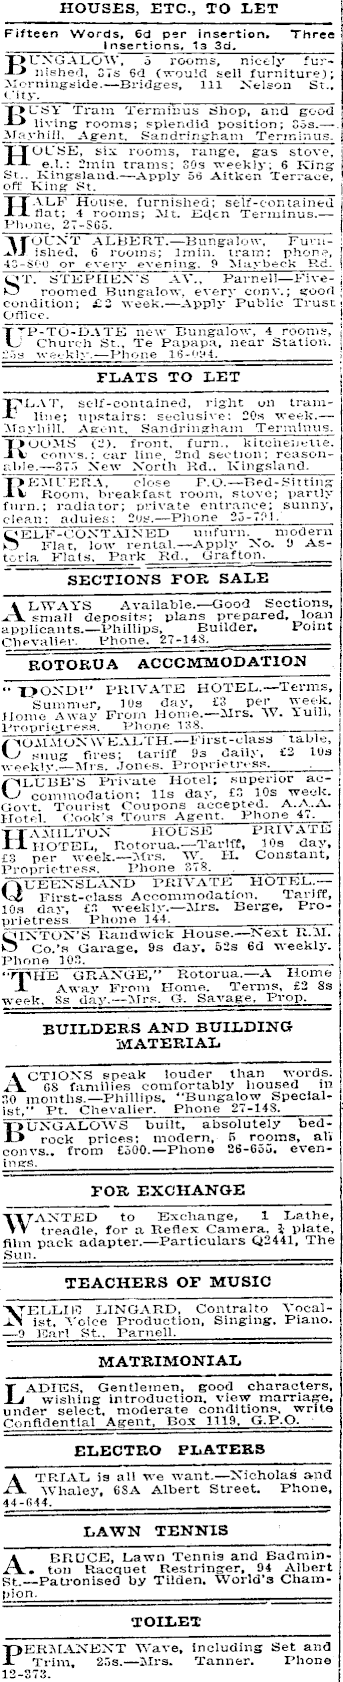 HOUSES, ETC., TO LET
Fifteen Words, 6d per insertion. Three
Insertions, 1s 3d.
BUNGALOW, 5 rooms, nicely fur-
nished, 37s 6d (would sell furniture);
Morningside.—Bridges, 111 Nelson St.,
City.
BUSY Tram Terminus Shop, and good
living rooms; splendid position; 35s.—
Mayhill, Agent, Sandringham Terminus.
HOUSE, six rooms, range, gas stove,
e.l.; 2min trams; 30s weekly; 6 King
St., Kingsland.—Apply 56 Aitken Terrace,
off King St.
HALF House, furnished; self-contained
flat; 4 rooms; Mt. Eden Terminus.—
Phone, 27-865.
MOUNT ALBERT.—Bungalow, Furn-
ished, 6 rooms; 1min. tram; phone,
or every evening. 9 Maybeck Rd.
ST. STEPHEN'S AV., Parnell—Five-
roomed Bungalow, every conv.; good
condition; £2 week.—Apply Public Trust
Office.
UP-TO-DATE new Bungalow, 4 rooms,
Church St., Te Papapa, near Station.
25s weekly.—Phone 16-094.
FLATS TO LET
FLAT, self-contained, right on tram-
line; upstairs; seclusive; 20s week.—
Mayhill, Agent, Sandringham Terminus.
ROOMS (2), front, furn., kitchenette,
convs.; car line, 2nd section; reason-
able.—375 New North Rd., Kingsland.
REMUERA, close P.O.—Bed-Sitting
Room, breakfast room, stove; partly
furn.; radiator; private entrance; sunny,
clean; adults; 20s.—Phone 25-791.
SELF-CONTAINED unfurn. modern
Flat, low rental.—Apply No. 9 As-
toria Flats, Park Rd., Grafton.
SECTIONS FOR SALE
ALWAYS Available.—Good Sections,
small deposits; plans prepared, loan
applicants.—Phillips, Builder, Point
Chevalier. Phone, 27-148.
ROTORUA ACCOMMODATION
"BONDI" PRIVATE HOTEL.—Terms,
Summer, 10s day, £3 per week.
Home Away From Home.—Mrs. W. Yuill,
Proprietress. Phone 138.
COMMONWEALTH.—First-class table,
snug fires; tariff 9s daily, £2 10s
weekly.—Mrs. Jones, Proprietress.
CLUBB'S Private Hotel; superior ac-
commodation; 11s day, £3 10s week.
Govt. Tourist Coupons accepted. A.A.A.
Hotel. Cook's Tours Agent. Phone 47.
HAMILTON HOUSE PRIVATE
HOTEL, Rotorua.—Tariff, 10s day,
£3 per week.—Mrs. W. H. Constant,
Proprietress. Phone 378.
QUEENSLAND PRIVATE HOTEL.—
First-class Accommodation. Tariff,
10s day, £3 weekly.—Mrs. Berge, Pro-
prietress Phone 144.
SINTON'S Randwick House.—Next R.M.
Co.'s Garage, 9s day, 52s 6d weekly.
Phone 103.
"THE GRANGE," Rotorua.—A Home
Away From Home. Terms, £2 8s
week, 8s day.—Mrs. G. Savage, Prop.
BUILDERS AND BUILDING
MATERIAL
ACTIONS speak louder than words.
68 families comfortably housed in
30 months.—Phillips, "Bungalow Special-
ist," Pt. Chevalier. Phone 27-148.
BUNGALOWS built, absolutely bed-
rock prices; modern, 5 rooms, all
convs., from £500.—Phone 26-655, even-
ings.
FOR EXCHANGE
WANTED to Exchange, 1 Lathe,
treadle, for a Reflex Camera, ¾ plate,
film pack adapter.—Particulars Q2441, The
Sun.
TEACHERS OF MUSIC
NELLIE LINGARD, Contralto Vocal-
ist, Voice Production, Singing, Piano.
—9 Earl St., Parnell.
MATRIMONIAL
LADIES, Gentlemen, good characters,
wishing introduction, view marriage,
under select, moderate conditions, write
Confidential Agent, Box 1119, G.P.O.
ELECTRO PLATERS
A TRIAL is all we want.—Nicholas and
Whaley, 68A Albert Street. Phone,
44-644.
LAWN TENNIS
A. BRUCE, Lawn Tennis and Badmin-
ton Racquet Restringer, 94 Albert
St.—Patronised by Tilden, World's Cham-
pion.
TOILET
PERMANENT Wave, including Set and
Trim, 25s.—Mrs. Tanner. Phone
12-373.